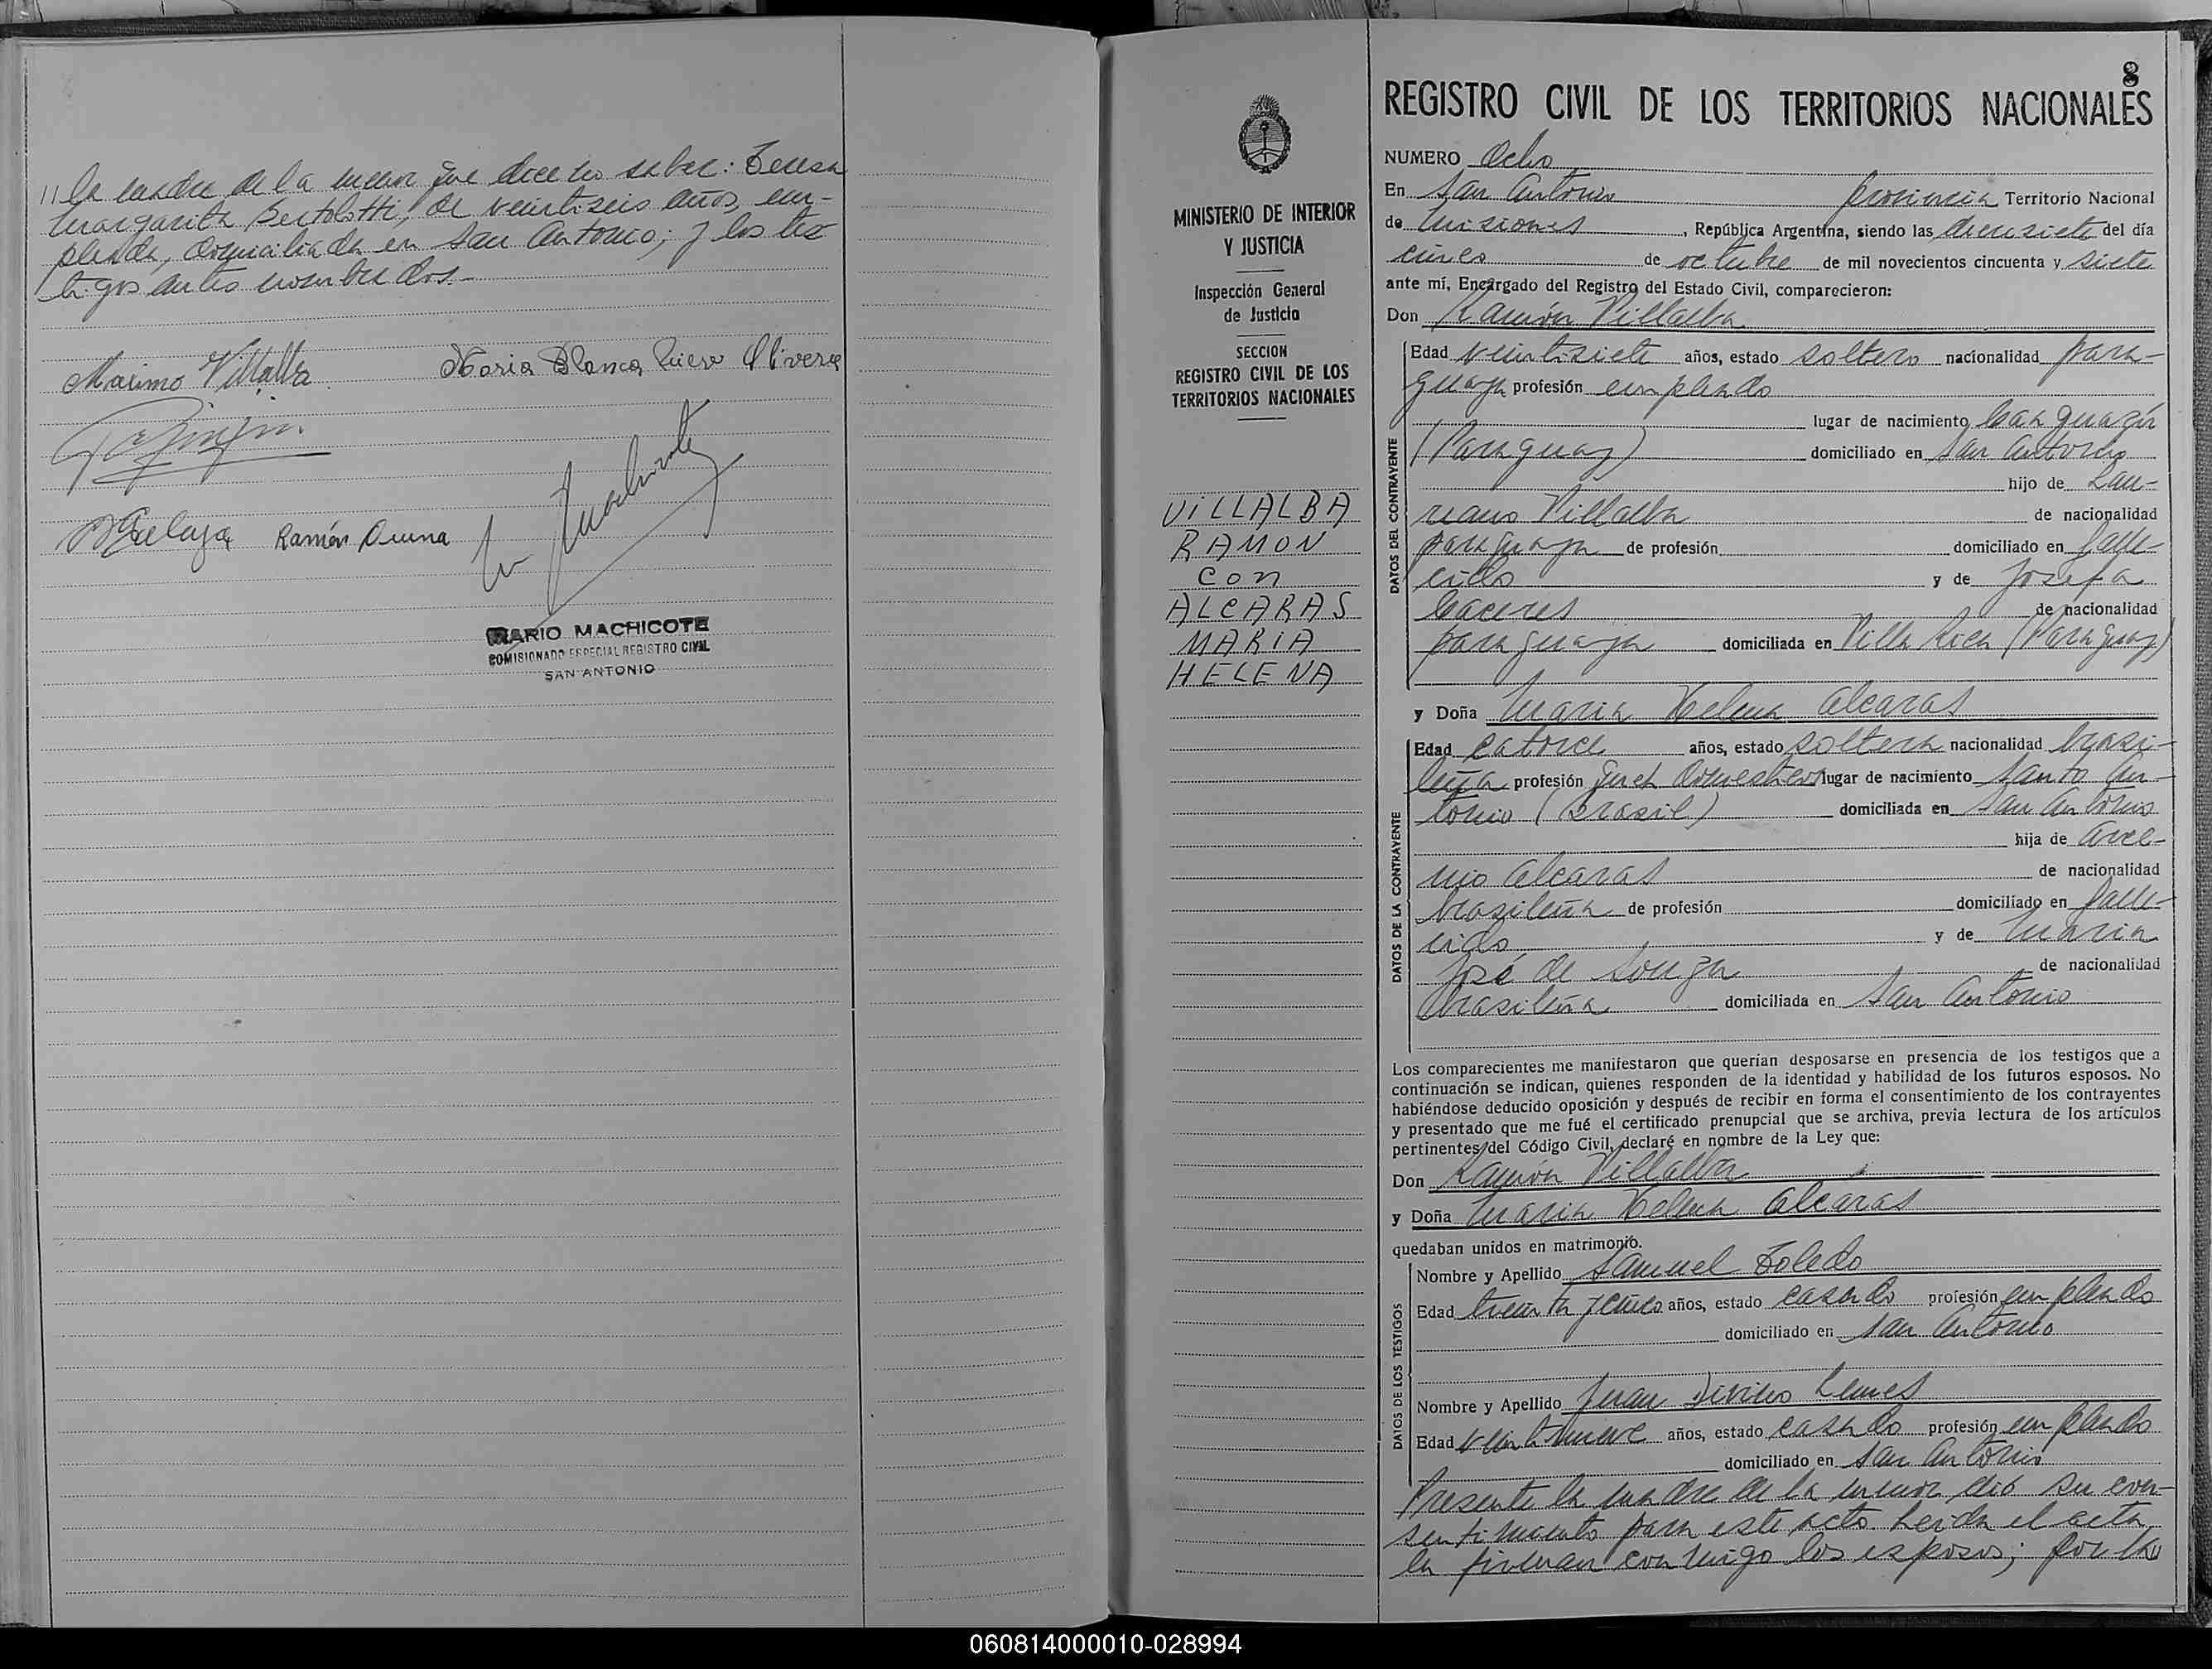 // la madre de la menor que dice no saber: Teresa
Margarita Bertolotti, de veintiseis años, em-
pleada, domiciliada en San Antonio; y los tes
tigos antes nombrados.-
Maximo Villalba
Maria Blanca Olivera
Ramón
MARIO MACHICOTE
COMISIONADO ESPECIAL REGISTRO CIVIL
SAN ANTONIO
MINISTERIO DE INTERIOR
Y JUSTICIA
Inspección General
de Justicia
SECCION
REGISTRO CIVIL DE LOS
TERRITORIOS NACIONALES
VILLALBA
RAMON
con
ALCARAS
MARIA
HELENA
8
REGISTRO CIVIL DE LOS TERRITORIOS NACIONALES
NUMERO Ocho
En San Antonio provincia Territorio Nacional
de Misiones, República Argentina, siendo las diecisiete del día
cinco de octubre de mil novecientos cincuenta y siete
ante mí, Encargado del Registro del Estado Civil, comparecieron:
Don Ramón Villalba
DATOS DEL CONTRAYENTE
Edad veintisiete años, estado soltero nacionalidad para-
guaya profesión empleado
lugar de nacimiento Caaguazú
(Paraguay) domiciliado en San Antonio
hijo de Lau-
reano Villalba de nacionalidad
paraguaya de profesión domiciliado en falle-
cido y de Josefa
Caceres de nacionalidad
paraguaya domiciliada en Villa Rica (Paraguay)
y Doña Maria Helena Alcaras
DATOS DE LA CONTRAYENTE
Edad catorce años, estado soltera nacionalidad brasi-
leña profesión queh. domesticos lugar de nacimiento Santo An-
tonio (Brasil) domiciliada en San Antonio
hija de Avel-
ino Alcaras de nacionalidad
brasileña de profesión domiciliado en falle-
cido y de Maria
José de Souza de nacionalidad
brasileña domiciliada en San Antonio
Los comparecientes me manifestaron que querían desposarse en presencia de los testigos que a
continuación se indican, quienes responden de la identidad y habilidad de los futuros esposos. No
habiéndose deducido oposición y después de recibir en forma el consentimiento de los contrayentes
y presentado que me fué el certificado prenupcial que se archiva, previa lectura de los artículos
pertinentes del Código Civil, declaré en nombre de la Ley que:
Don Ramón Villalba
y Doña Maria Helena Alcaras
quedaban unidos en matrimonio.
DATOS DE LOS TESTIGOS
Nombre y Apellido Samuel Toledo
Edad treinta y cinco años, estado casado profesión empleado
domiciliado en San Antonio
Nombre y Apellido Juan Lemes
Edad veintinueve años, estado casado profesión empleado
domiciliado en San Antonio
Presente la madre de la menor dió su con-
sentimiento para este acto. Leida el acta
la firman conmigo los esposos; por la//
060814000010-028994